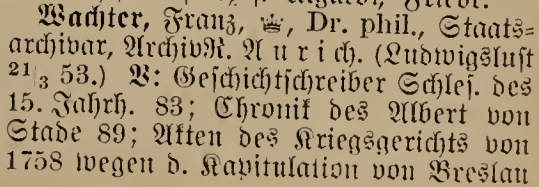 Wachter, Franz, ♕, Dr. phil., Staats=
archivar, ArchivR. Aurich. (Ludwigslust
21/3 53.) V: Geschichtschreiber Schles. des
15. Jahrh. 83; Chronik des Albert von
Stade 89; Akten des Kriegsgerichts von
1758 wegen d. Kapitulation von Breslau